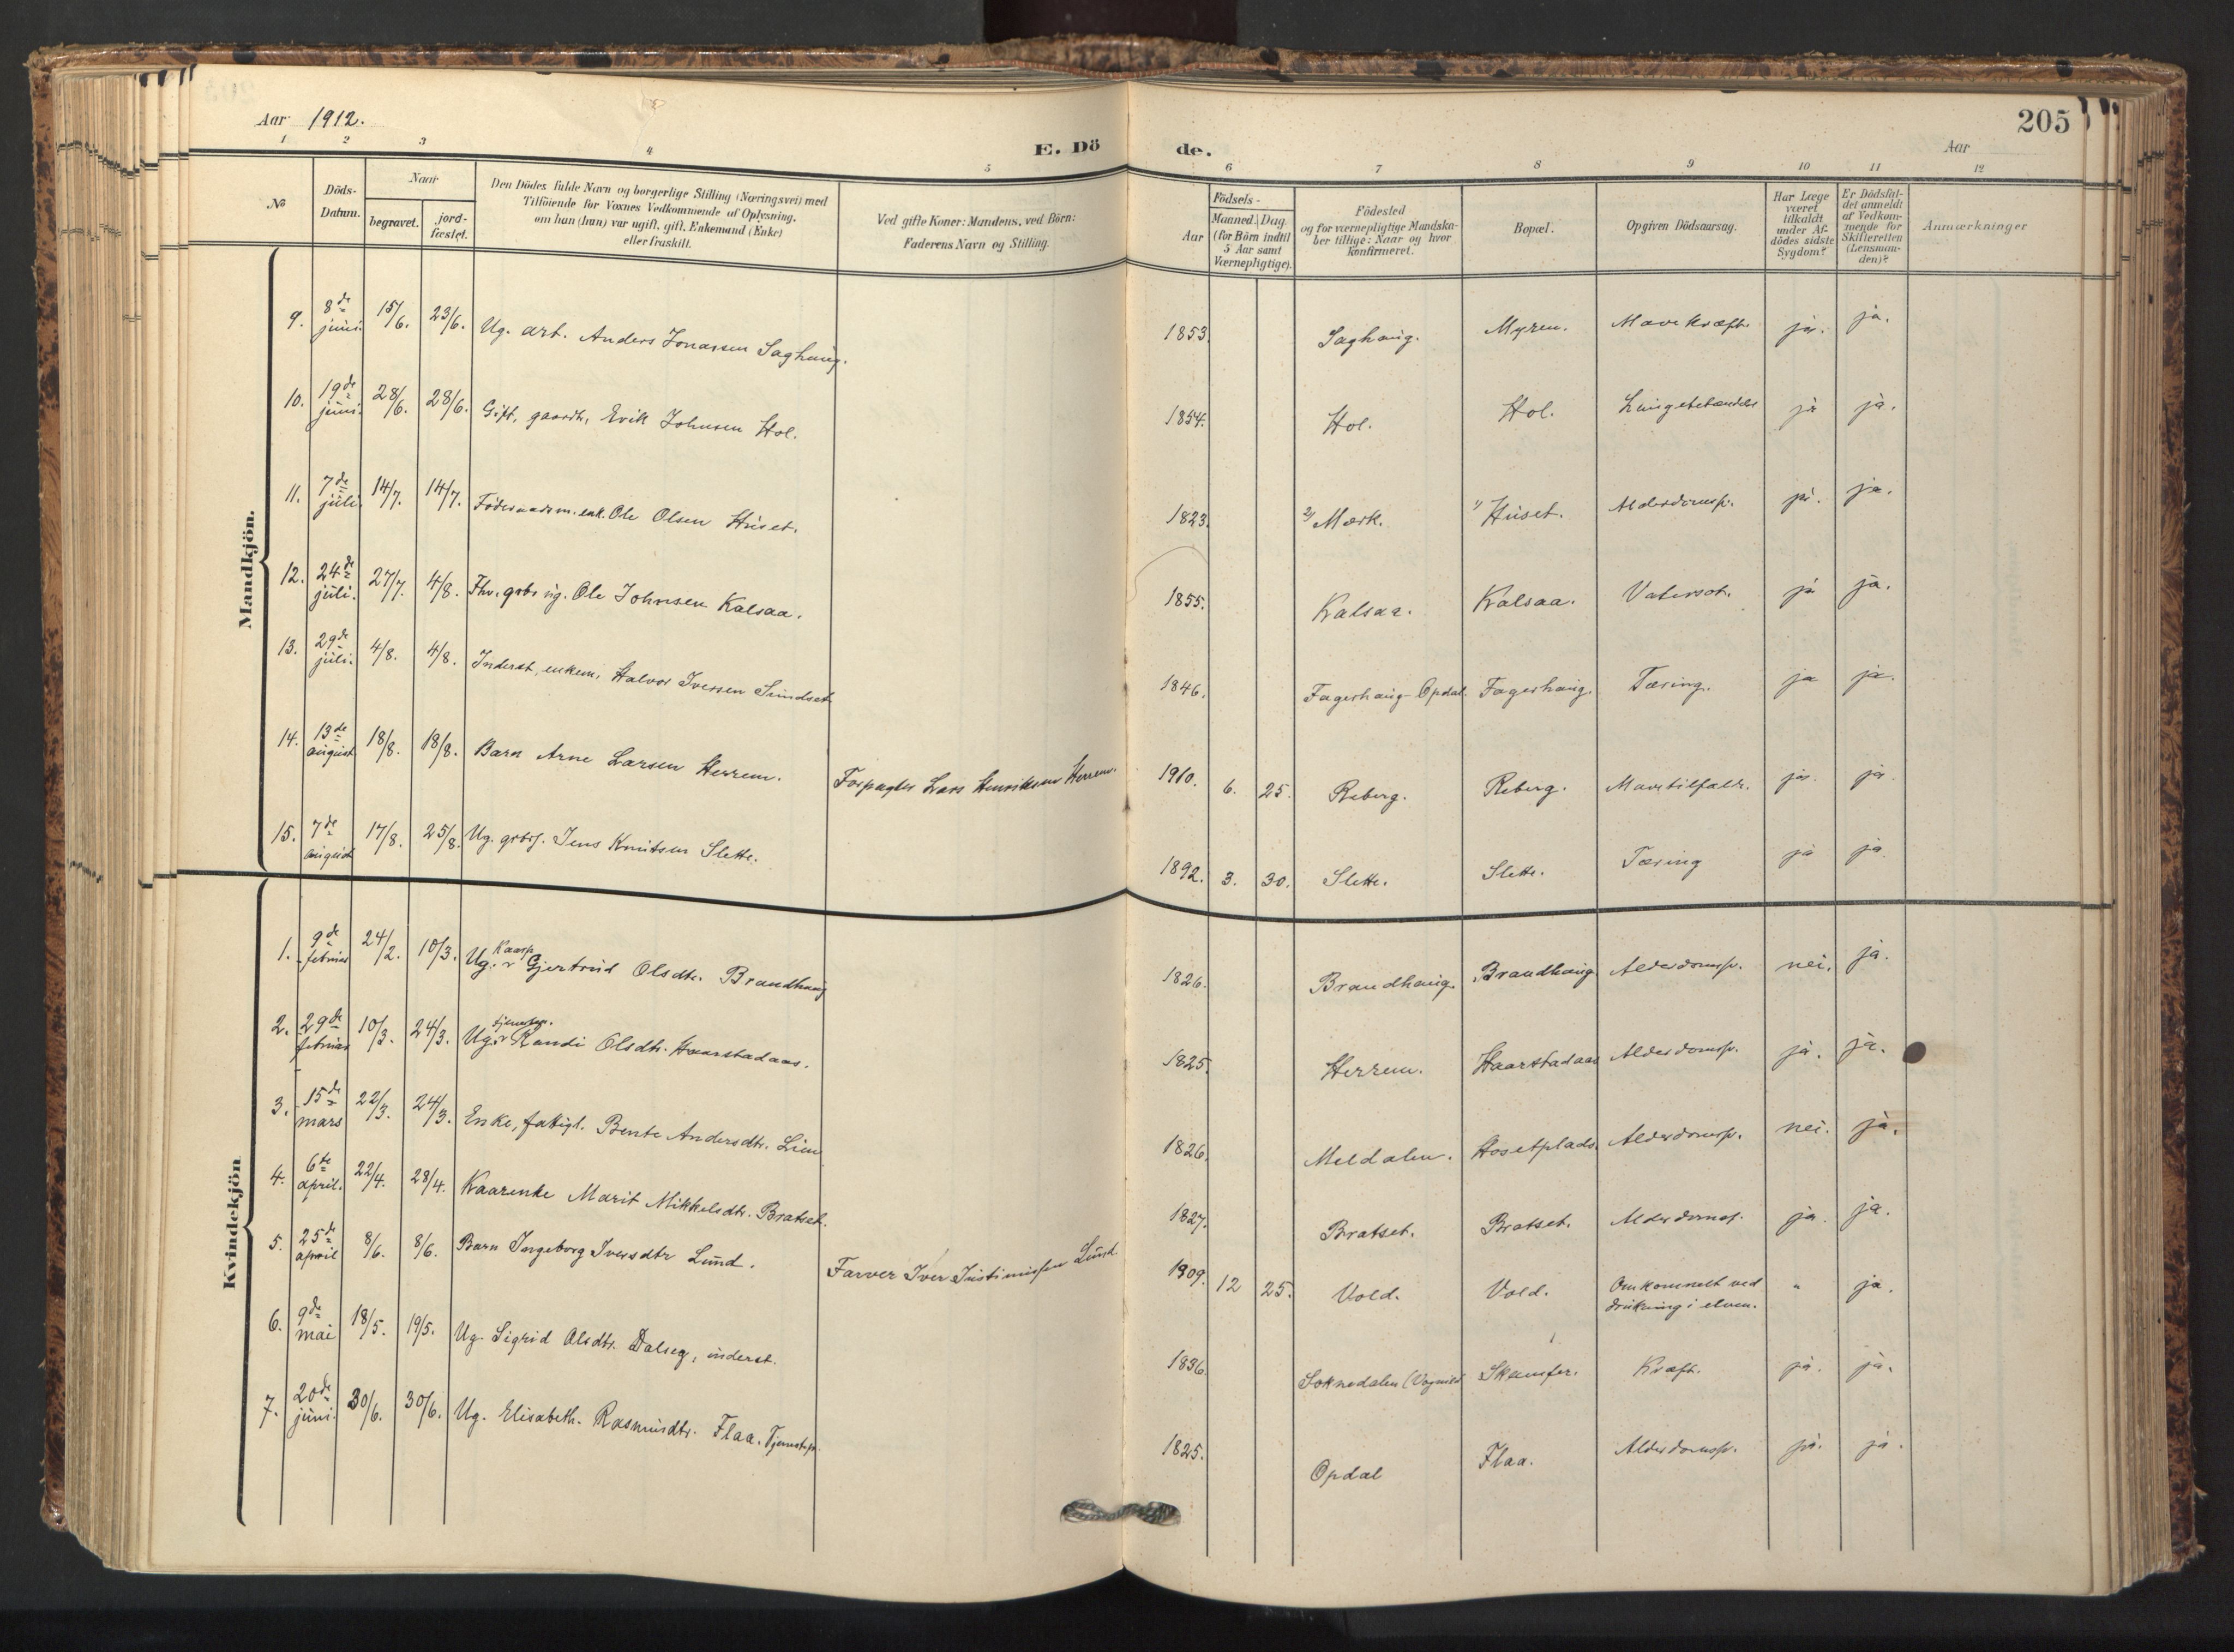 205
Aar 1912.
E. Dö de.
Aar
1 2 3 4 5 6 7 8 9 10 11 12
No
Döds-
Datum.
Naar
begravet.
jord-
fæstet.
Den Dödes fulde Navn og borgerlige Stilling (Næringsvei) med
Tilföiende for Voxnes Vedkommende af Oplysning,
om han (hun) var ugift, gift, Enkemand (Enke)
eller fraskilt.
Ved gifte Koner: Mandens, ved Börn:
Faderens Navn og Stilling.
Födsels-
Aar
Maaned. Dag.
(for Börn indtil
5 Aar samt
Værnepligtige).
Födested
og for værnepligtige Mandska-
ber tillige: Naar og hvor
Konfirmeret.
Bopæl.
Opgiven Dödsaarsag.
Har Læge
været
tilkaldt
under Af-
dödes sidste
Sygdom?
Er Dödsfal-
det anmeldt
af Vedkom-
mende for
Skifteretten
(Lensman-
den)?
Anmærkninger
Mandkjön.
9. 8de juni. 15/6. 23/6. Ug. arb. Anders Jonassen Saghaug. 1853. Saghaug. Myren. Mavekræft. ja. ja.
10. 19de juni. 28/6. 28/6. Gift, gaardb. Erik Johnsen Hol. 1854. Hol. Hol. Lungebetændelse ja ja.
11. 7de juli. 14/7. 14/7. Föderaadsm. enk. Ole Olsen Huset. 1823. 2/ Mærk. 1/ Huset. Alderdomssv. ja. ja.
12. 24de juli. 27/7. 4/8. Fhv. grbr ug. Ole Johnsen Kalsaa. 1855. Kalsaa. Kalsaa. Vatersot. ja ja.
13. 29de juli. 4/8. 4/8. Inderst, enkem. Halvor Iversen Sundset 1846. Fagerhaug-Opdal. Fagerhaug. Tæring. ja ja.
14. 13de august 18/8. 18/8. Barn Arne Larsen Herrem. Forpagter Lars Henriksen Herrem. 1910. 6. 25. Reberg. Reberg. Mavetilfælde. ja. ja.
15. 7de august 17/8. 25/8. Ug. grbrs. Jens Knutsen Slette. 1892. 3. 30. Slette. Slette. Tæring ja ja.
Kvindekjön
1. 9de februar 24/2. 10/3. Ug. Kaarp Gjertrud Olsdtr. Brandhaug 1826. Brandhaug. Brandhaug Alderdomssv. nei. ja.
2. 29de februar 10/3. 24/3. Ug. tjenestep. Randi Olsdtr. Haarstadaas. 1825. Herrem. Haarstadaas Alderdomssv. ja. ja.
3. 15de mars 22/3. 24/3. Enke, fattigl. Bente Andersdtr. Lien 1826. Meldalen. Hosetplads. Alderdomssv. nei. ja.
4. 6te april. 22/4. 28/4. Kaarenke Marit Mikkelsdtr. Bratset. 1827. Bratset. Bratset. Alderdomssv. ja. ja.
5. 25de april 8/6. 8/6. Barn Ingeborg Iversdtr Lund. Farver Iver Lund. 1909. 12 25. Vold. Vold. Omkommet ved
drukning i elven. " ja.
6. 9de mai 18/5. 19/5. Ug. Sigrid Olsdtr. Dalseg, inderst. 1836. Soknedalen Skamfer. Kræft. ja. ja.
7. 20de juni. 30/6. 30/6. Ug. Elisabeth Rasmusdtr. Flaa. Tjenestep. 1825. Opdal Flaa. Alderdomssv. ja. ja.